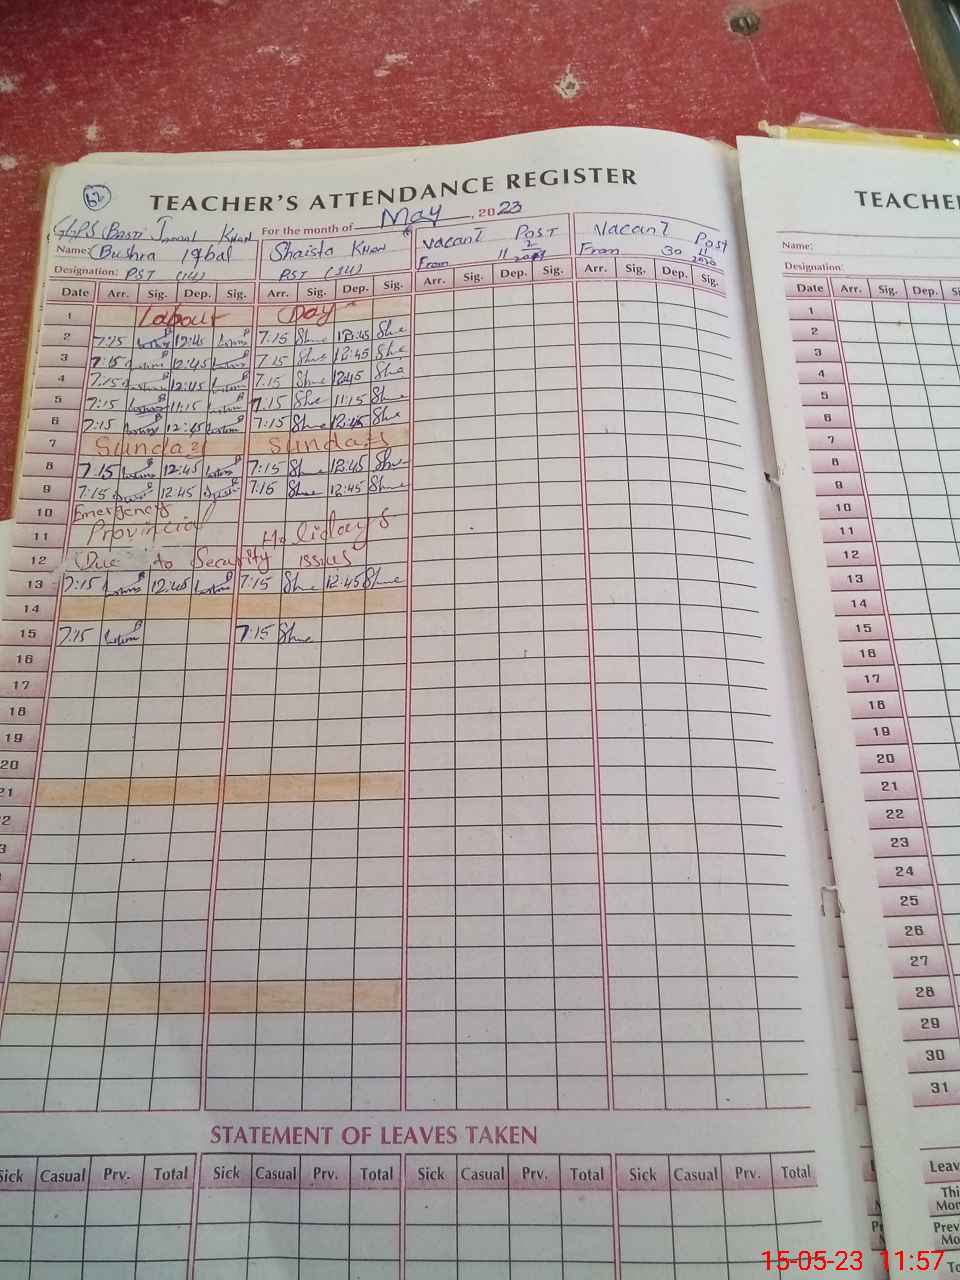 62
TEACHER'S ATTENDANCE REGISTER
For the month of May, 2023
GGPS Basti Jamal Khan
Name: Bushra Iqbal Shaista Khan Vacant Post Vacant Post
Designation: PST PST From 11 2 From 30 11 2020
Date Arr. Sig. Dep. Sig. Arr. Sig. Dep. Sig. Arr. Sig. Dep. Sig. Arr. Sig. Dep. Sig.
1 Labour Day
2 7:15 12:45 7:15 She 12:45 She
3 7:15 12:45 7:15 She 12:45 She
4 7:15 12:45 7:15 She 12:45 She
5 7:15 11:15 7:15 She 11:15 She
6 7:15 12:45 7:15 She 12:45 She
7 Sunday Sunday
8 7:15 12:45 7:15 She 12:45 She
9 7:15 12:45 7:15 She 12:45 She
10 Emergency
11 Provincial Holidays
12 Due to Security issues
13 7:15 12:45 7:15 She 12:45 She
14
15 7:15 7:15 She
16
17
18
19
20
21
2
3
STATEMENT OF LEAVES TAKEN
Sick Casual Prv. Total Sick Casual Prv. Total Sick Casual Prv. Total Sick Casual Prv. Total
TEACHE
Name:
Designation:
Date Arr. Sig. Dep. Si
1
2
3
4
5
6
7
8
9
10
11
12
13
14
15
16
17
18
19
20
21
22
23
24
25
26
27
28
29
30
31
Leav
Thi
Mor
Prev
Mo
To
15-05-23 11:57